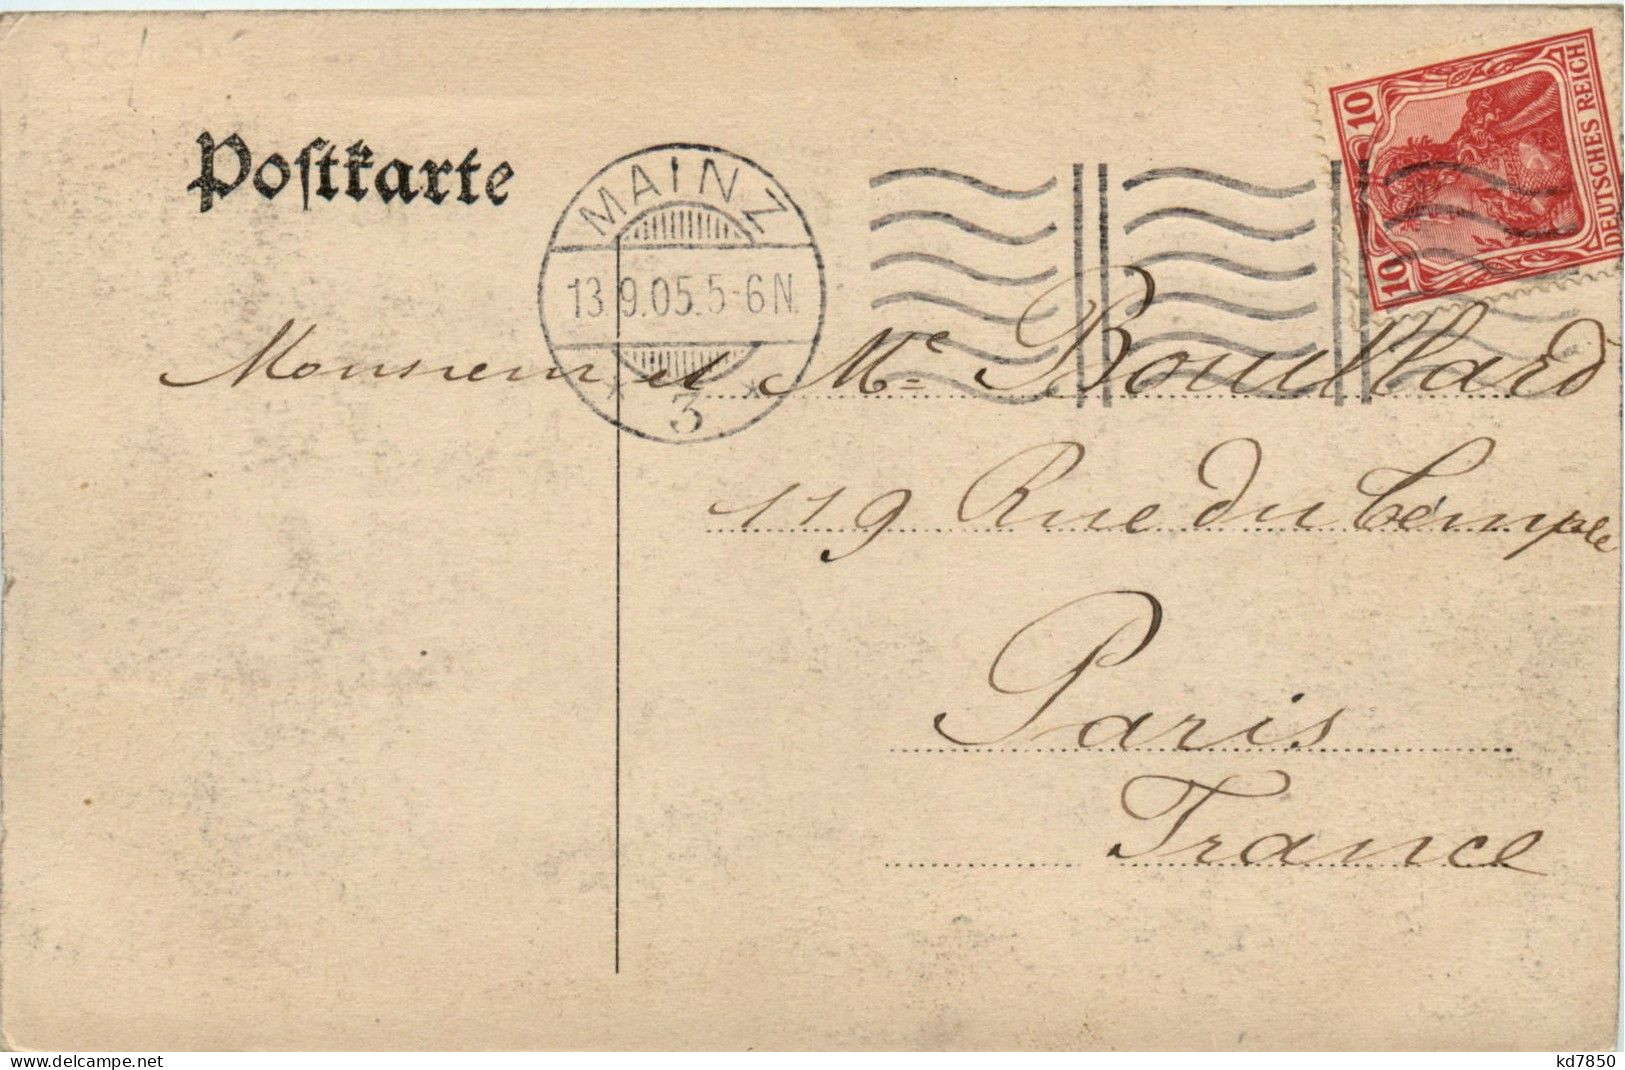 Postkarte
MAINZ
13.9.05.5-6N.
3
10
10
DEUTSCHES REICH
Monsieur et Me Bouillard
119 Rue du Témple
Paris
France
www.delcampe.net
kd7850